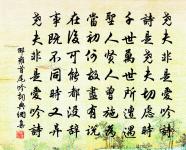 堯夫非是愛吟詩
詩是堯夫切慮時
千世萬世所遭遇
聖人賢人曾施為
當初何故盡有說
在後可能都沒辭
事既不同時又异
堯夫非是愛吟詩
邵雍首尾吟